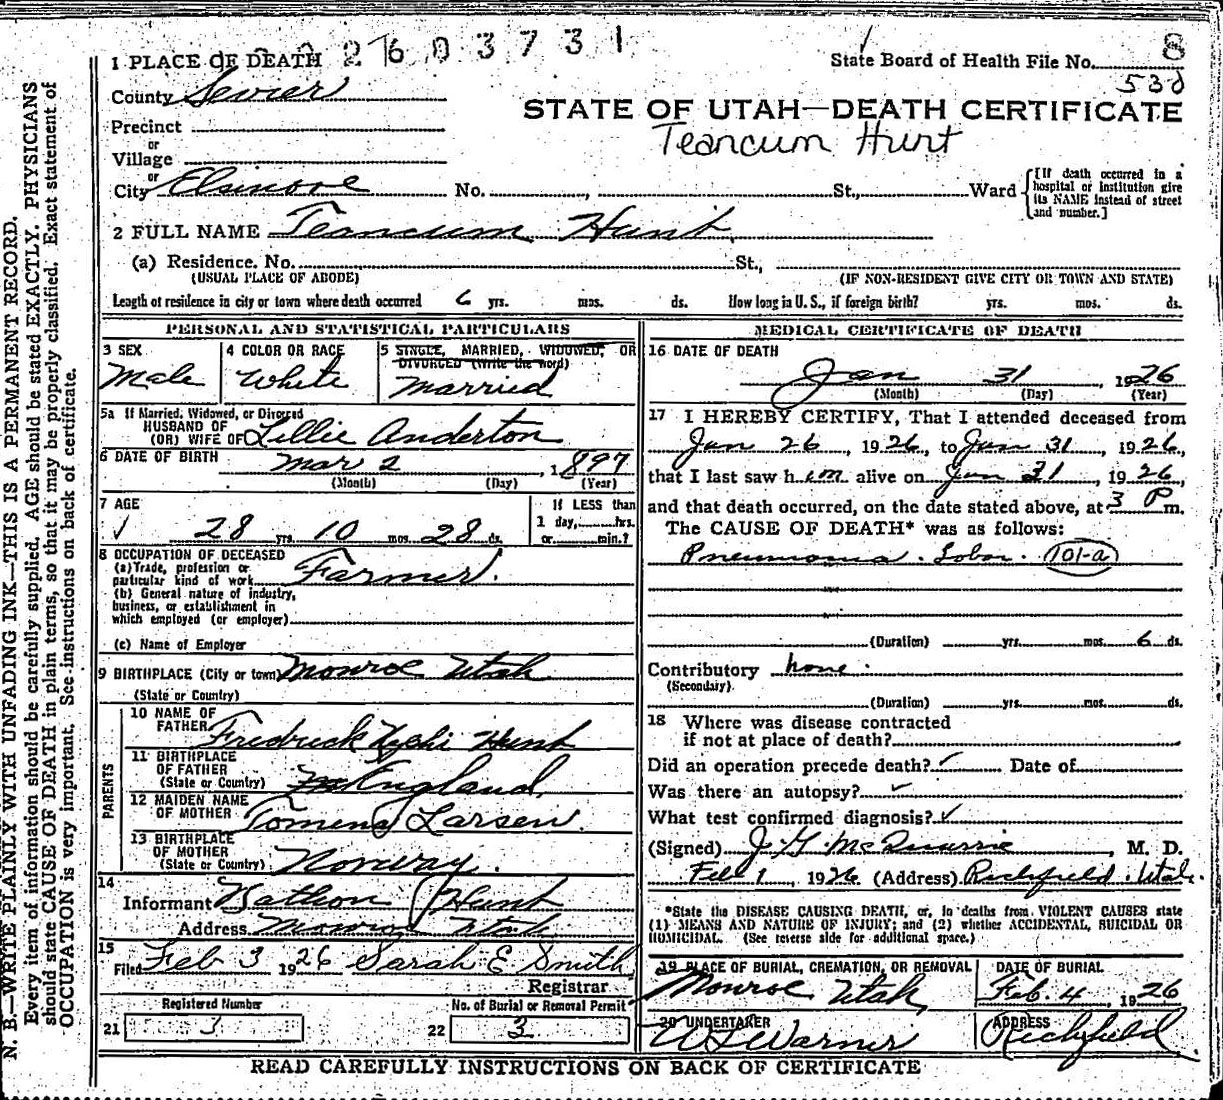 1 PLACE OF DEATH 2603731
State Board of Health File No. 8
530
County Sevier
STATE OF UTAH—DEATH CERTIFICATE
Precinct
Teancum Hunt
or
Village
or
City Elsinore No. , St., Ward
[If death occurred in a hospital or institution give its NAME instead of street and number.]
2 FULL NAME Teancum Hunt
(a) Residence. No. St.,
(USUAL PLACE OF ABODE) (IF NON-RESIDENT GIVE CITY OR TOWN AND STATE)
Length of residence in city or town where death occurred 6 yrs. mos. ds. How long in U. S., if foreign birth? yrs. mos. ds.
PERSONAL AND STATISTICAL PARTICULARS
3 SEX 4 COLOR OR RACE 5 SINGLE, MARRIED, WIDOWED, OR
DIVORCED (Write the word)
Male White Married
5a If Married, Widowed, or Divorced
HUSBAND OF
(OR) WIFE OF Lillie Anderton
6 DATE OF BIRTH Mar 2 , 1897
(Month) (Day) (Year)
7 AGE If LESS than
1 day, hrs.
28 yrs. 10 mos. 28 ds. or min.?
8 OCCUPATION OF DECEASED
(a) Trade, profession or
particular kind of work Farmer.
(b) General nature of industry,
business, or establishment in
which employed (or employer)
(c) Name of Employer
9 BIRTHPLACE (City or town) Monroe Utah
(State or Country)
PARENTS
10 NAME OF
FATHER Fredrick Hunt
11 BIRTHPLACE
OF FATHER
(State or Country) England
12 MAIDEN NAME
OF MOTHER Tomena Larsen.
13 BIRTHPLACE
OF MOTHER
(State or Country) Norway.
14
Informant Hunt
Address Monroe Utah
15
Filed Feb 3 1926 Sarah E Smith
Registrar
Registered Number No. of Burial or Removal Permit
21 3 22 3
MEDICAL CERTIFICATE OF DEATH
16 DATE OF DEATH
Jan 31 , 1926
(Month) (Day) (Year)
17 I HEREBY CERTIFY, That I attended deceased from
Jan 26 , 1926, to Jan 31 , 1926,
that I last saw him alive on Jan 31 , 1926,
and that death occurred, on the date stated above, at 3 P m.
The CAUSE OF DEATH* was as follows:
Pneumonia. Lobar. 101-a
(Duration) yrs. mos. 6 ds.
Contributory none.
(Secondary)
(Duration) yrs. mos. ds.
18 Where was disease contracted
if not at place of death?
Did an operation precede death? ✓ Date of
Was there an autopsy? ✓
What test confirmed diagnosis? ✓
(Signed) J. G. McQuarrie , M. D.
Feb 1 , 1926 (Address) Richfield. Utah.
*State the DISEASE CAUSING DEATH, or, in deaths from VIOLENT CAUSES state
(1) MEANS AND NATURE OF INJURY; and (2) whether ACCIDENTAL, SUICIDAL OR
HOMICIDAL. (See reverse side for additional space.)
19 PLACE OF BURIAL, CREMATION, OR REMOVAL DATE OF BURIAL
Monroe Utah, Feb. 4 , 1926
20 UNDERTAKER ADDRESS
Warner Richfield
READ CAREFULLY INSTRUCTIONS ON BACK OF CERTIFICATE
N. B.—WRITE PLAINLY WITH UNFADING INK—THIS IS A PERMANENT RECORD.
Every item of information should be carefully supplied. AGE should be stated EXACTLY. PHYSICIANS
should state CAUSE OF DEATH in plain terms, so that it may be properly classified. Exact statement of
OCCUPATION is very important. See instructions on back of certificate.